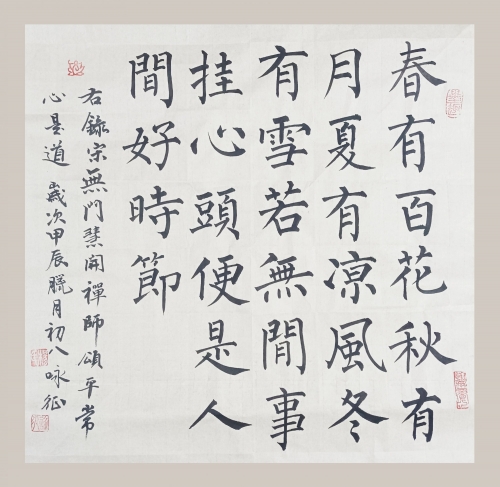 春有百花秋有
月夏有凉風冬
有雪若無閒事
挂心頭便是人
間好時節
右録宋無門慧開禪師頌平常
心是道 歲次甲辰臘月初八咏征